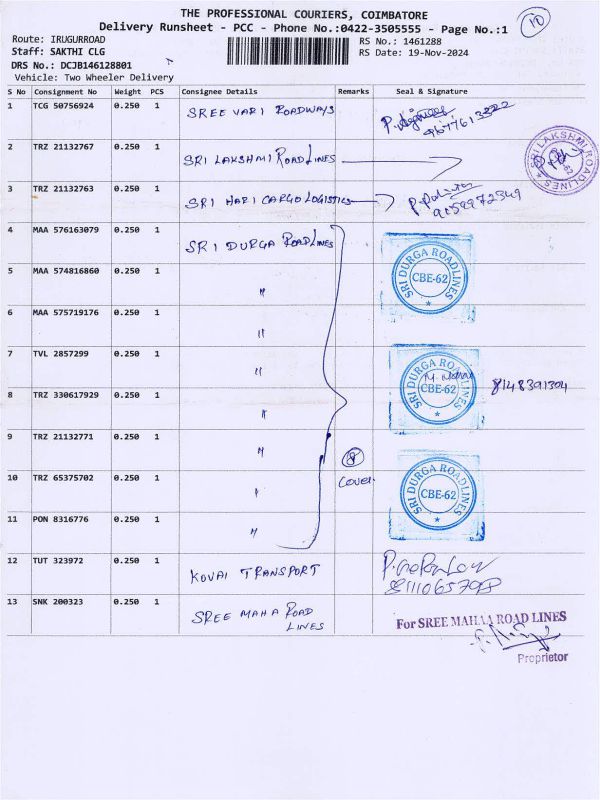 THE PROFESSIONAL COURIERS, COIMBATORE
10
Delivery Runsheet - PCC - Phone No.:0422-3505555 - Page No.:1
Route: IRUGURROAD
RS No.: 1461288
Staff: SAKTHI CLG
RS Date: 19-Nov-2024
DRS No.: DCJB146128801
Vehicle: Two Wheeler Delivery
S No Consignment No Weight PCS Consignee Details Remarks Seal & Signature
1 TCG 50756924 0.250 1 SREE VARI ROADWAYS
9677613222
2 TRZ 21132767 0.250 1 SRI LAKSHMI ROAD LINES
SRI LAKSHMI ROADLINES
3 TRZ 21132763 0.250 1 SRI HARI CARGO LOGISTICS
9159972349
4 MAA 576163079 0.250 1 SRI DURGA ROADLINES
SRI DURGA ROADLINES
CBE-62
5 MAA 574816860 0.250 1 "
6 MAA 575719176 0.250 1 "
7 TVL 2857299 0.250 1 "
SRI DURGA ROADLINES
CBE-62
8148391304
8 TRZ 330617929 0.250 1 "
9 TRZ 21132771 0.250 1 "
8
Cover
SRI DURGA ROADLINES
CBE-62
10 TRZ 65375702 0.250 1 "
11 PON 8316776 0.250 1 "
12 TUT 323972 0.250 1 KOVAI TRANSPORT
13 SNK 200323 0.250 1 SREE MAHA ROAD
LINES
For SREE MAHAA ROAD LINES
Proprietor